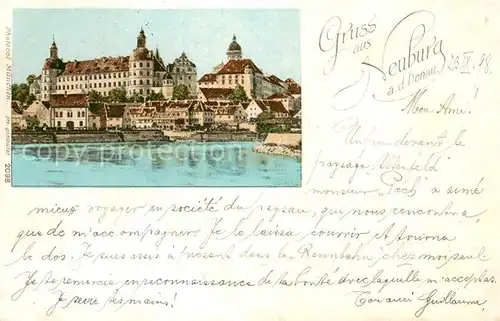 Gruss
aus
Neuburg
a. d. Donau.
23.IX.98.
Mon Ami!
Un peu devant le
paysage
monsieur "Pech" a aimé
mieux voyager en société du paysan, qui nous rencontra,
que de m'accompagner. Je le laissa courrir et tourna
le dos. Je suis assis à présent dans la Rennbahn chez moi seul.
Je te remercis en reconnaissance de ta bonté avec laquelle m'acceptas.
Je serre tes mains! Ton ami Guillaume.
2098